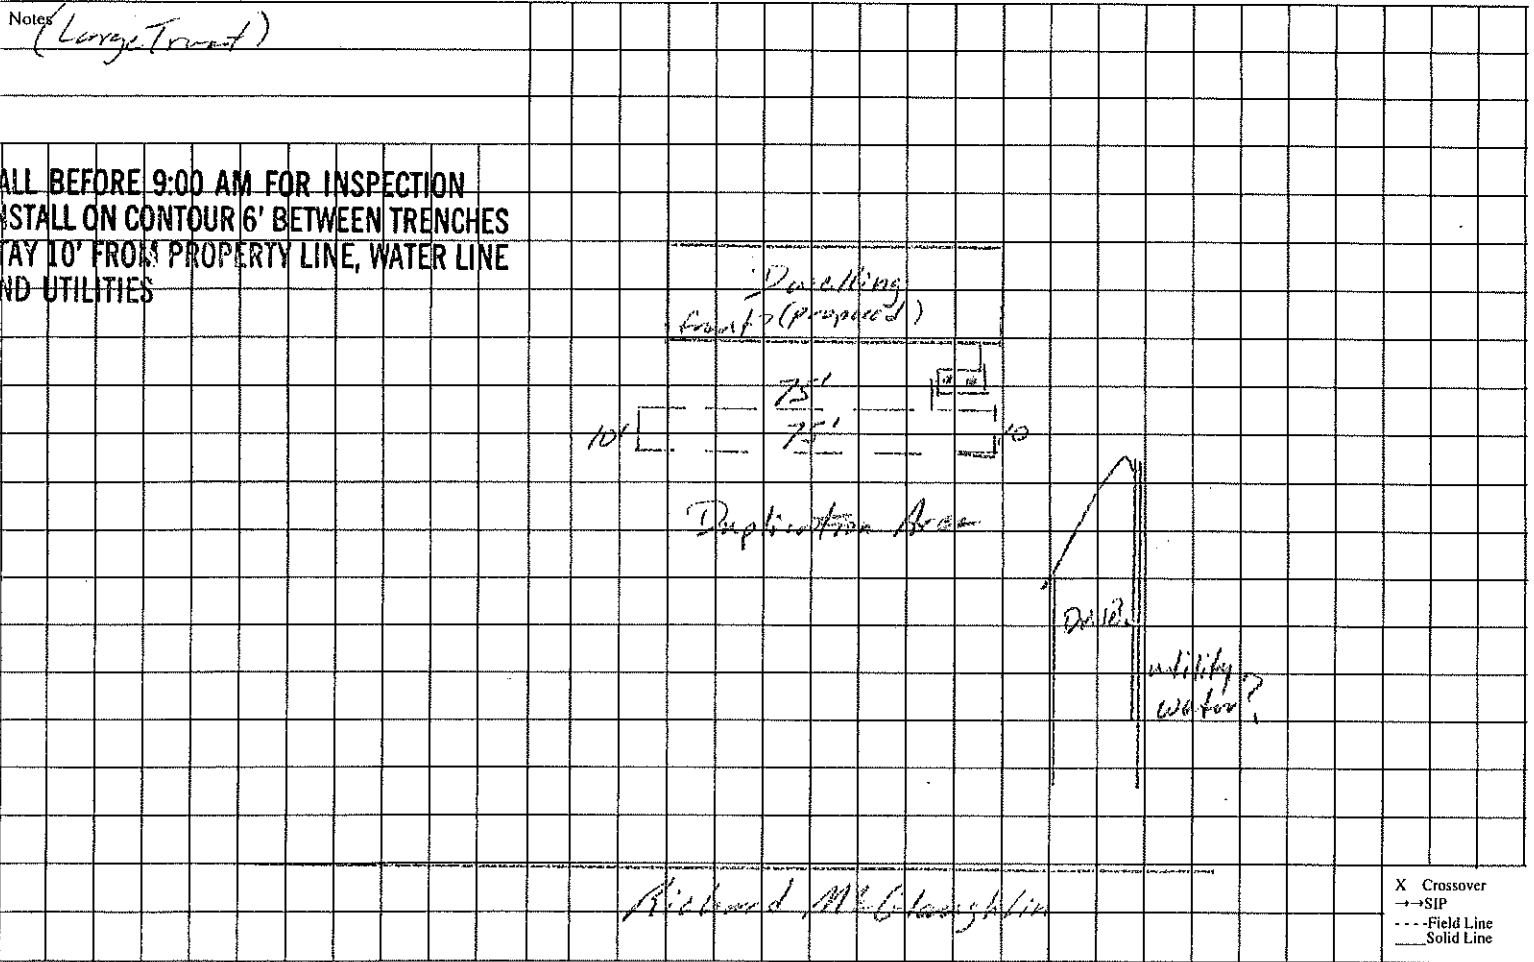 Notes
(Large Tract)
ALL BEFORE 9:00 AM FOR INSPECTION
NSTALL ON CONTOUR 6' BETWEEN TRENCHES
TAY 10' FROM PROPERTY LINE, WATER LINE
ND UTILITIES
Dwelling
front? (proposed)
75'
10' 75' 10
Duplication Area
Drive
utility
water?
Richard McGlaughlin
X Crossover
→→SIP
----Field Line
Solid Line